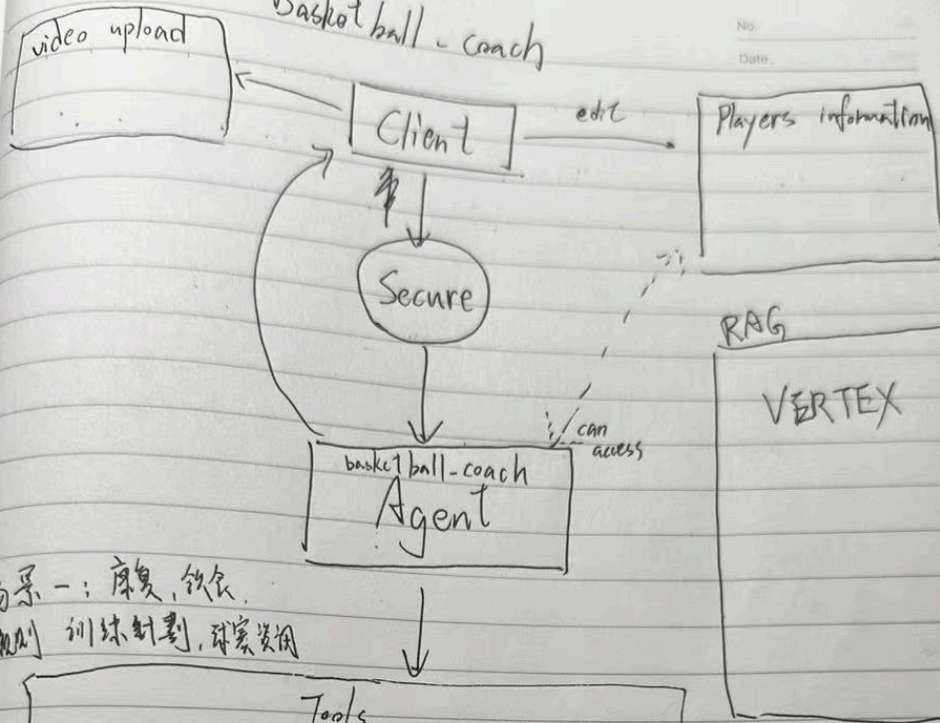 Basketball - coach
No.
Date.
video upload
Client
edit
Players information
Secure
RAG
VERTEX
can
access
basketball-coach
Agent
景一：康复、饮食、
规划 训练計劃，球赛资讯
Tools